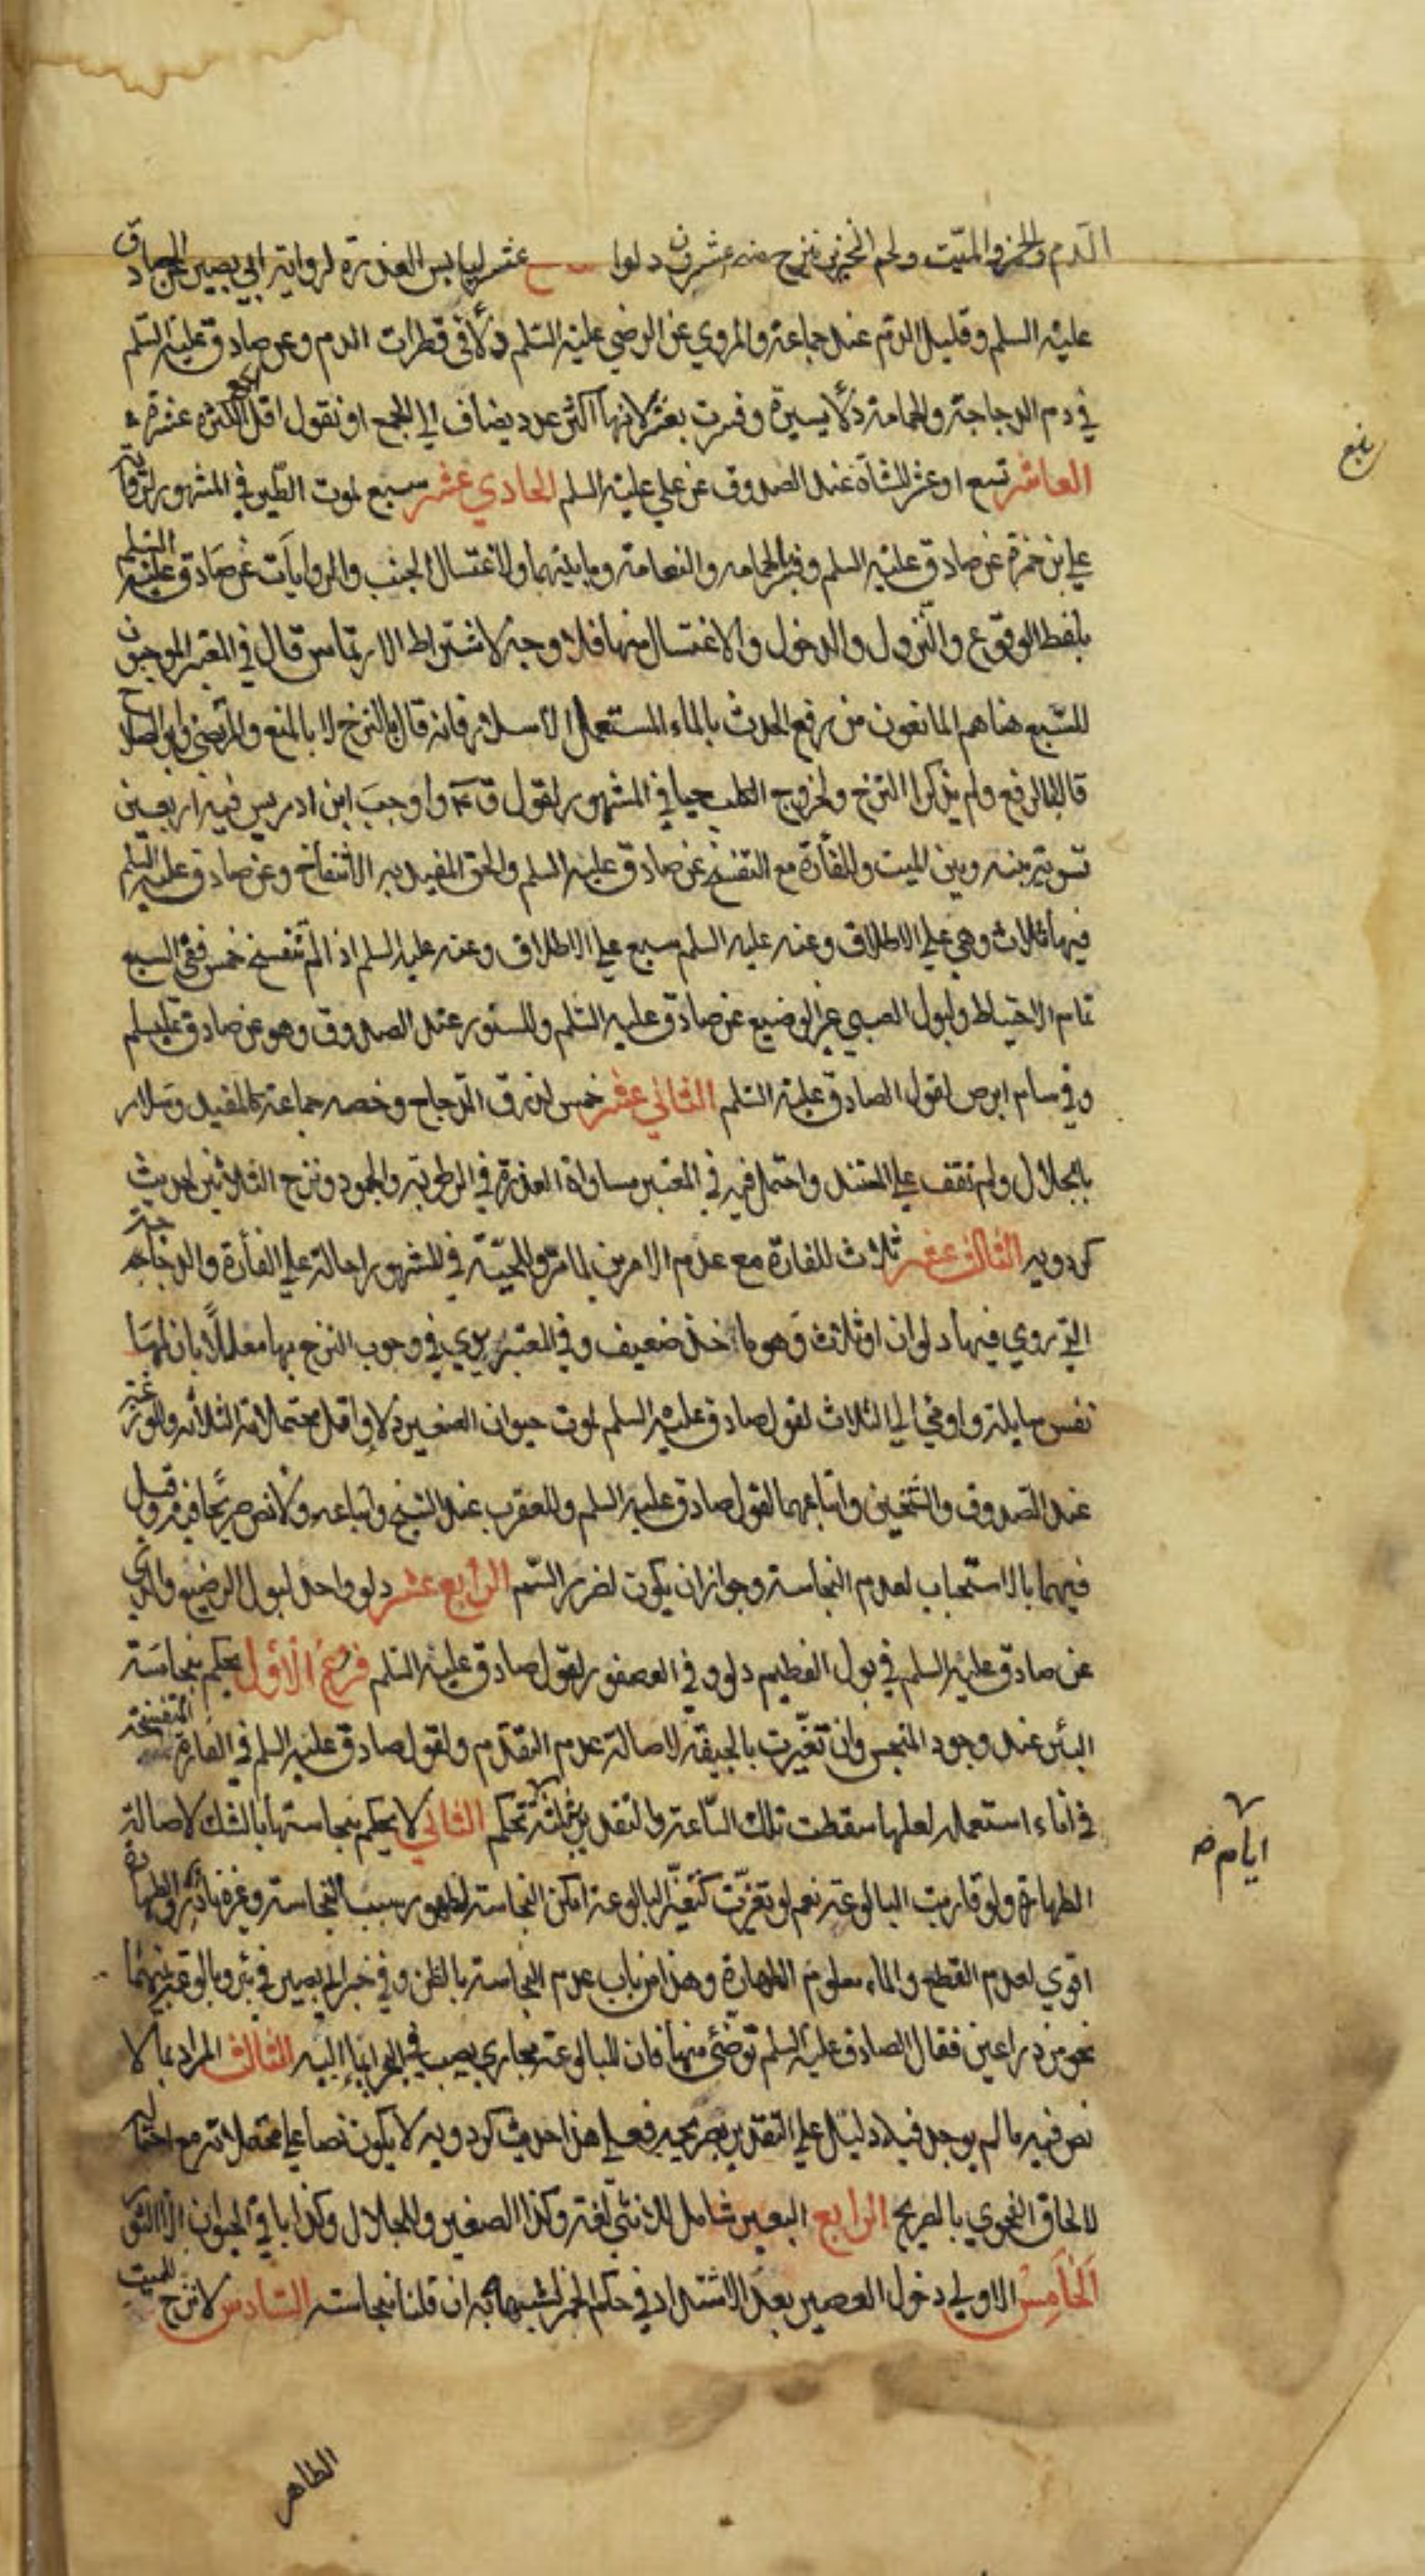 الدم والخمر والميّت ولحم الخنزير ينزح منه عشرون دلوا عشر ليابس العذرة لرواية ابي بصير عن الصادق
عليه السلم وقليل الدم عند جماعة والمروي عن الرضي عليه السلم دلاً في قطرات الدم وعن صادق عليه السلم
في دم الدجاجة والحمامة دلاً يسيرة وفسرت بعشر لانها اكثر عدد يضاف الي الجمع او نقول اقل جمع الكثرة عشرة
العاشر تسع او عشر للشاة عند الصدوق عن علي عليه السلم الحادي عشر سبع لموت الطير في المشهور لرواية
علي بن حمزة عن صادق عليه السلم وفسر بالحمامه والنعامة وما بينهما ولاغتسال الجنب والروايات عن صادق عليه السلم
بلفظ الوقوع والنزول والدخول والاغتسال منها فلا وجه لاشتراط الارتماس قال في المعتبر الموجبون
للسّبع هنا هم المانعون من رفع الحدث بالماء المستعمل الا سلار فانه قال بالنزح لا بالمنع والمرتضي وابو الصلاح
قالا بالرفع ولم يذكرا النزح ولخروج الكلب حيا في المشهور لقول ق ع م واوجب ابن ادريس فيه اربعين
تسوية بينه وبين الميت وللفأرة مع التفسخ عن صادق عليه السلم والحق المفيد به الانتفاخ وعن صادق عليه السلم
فيها ثلاث وهي علي الاطلاق وعنه عليه السلم سبع علي الاطلاق وعنه عليه السلم اذا لم تتفسخ خمس ففي السبع
تمام الاحتياط ولبول الصبي غير الرضيع عن صادق عليه السلم وللسنور عند الصدوق وهو عن صادق عليه سلم
وفي سام ابرص لقول الصادق عليه السلم الثاني عشر خمس لذرق الدجاج وخصه جماعة كالمفيد وسلار
بالجلال ولم نقف علي المستند واحتمل فيه في المعتبر مساواة العذرة في الرطوبة والجمود ونزح الثلاثين لحديث
كردويه الثالث عشر ثلاث للفارة مع عدم الامرين لما مر وللحيّة في المشهور احالة علي الفأرة والدجاجه
التي روي فيها دلوان او ثلاث وهو ماخذ ضعيف وفي المعتبر يروي في وجوب النزح بها معللاً بان لها
نفس سايلة واومي الي الثلاث لقول صادق عليه السلم لموت حيوان الصغير دلاء واقل محتملاته الثلاثه والوزغة
عند الصدوق والشيخين واتباعهما لقول صادق عليه السلم وللعقرب عند الشيخ واتباعه ولا نص صريحا فيه وقيل
فيهما بالاستحباب لعدم النجاسة وجواز ان يكون لضرر السّم الرابع عشر دلو واحد لبول الرضيع والذي
عن صادق عليه السلم في بول الفطيم دلو وفي العصفور لقول صادق عليه السلم فروع الاول يحكم بنجاسة
البئر عند وجود المنجس وان تغيّرت بالجيفة لاصالة عدم التقدم ولقول صادق عليه السلم في الفارة المتفسخة
في اناء استعماله لعلها سقطت تلك الساعة والتقدير بثلثة تحكم الثاني لا يحكم بنجاستها بالشك لاصالة
الطهارة ولو قاربت البالوعة نعم لو تغيّرت كتغيّر البالوعة امكن النجاسة لظهور سبب النجاسة وغيره نادر والطهارة
اقوي لعدم القطع والماء معلوم الطهارة وهذا من باب عدم النجاسة بالظن وفي خبر ابي بصير في بئر وبالوعة بينهما
نحو من ذراعين فقال الصادق عليه السلم توضئ منها فان للبالوعة مجاري يصب في البحر الثالث المراد بما لا
نص فيه ما لم يوجد فيه دليل علي التقدير بصريحه فعلي هذا حديث كردويه لا يكون نصا علي محتملاته مع احتماله
لالحاق الفحوي بالصريح الرابع البعير شامل للانثي لغة وكذا الصغير والجلال وكذا باقي الحيوان الا الثور
الخامس الاولي دخول العصير بعد الاشتداد في حكم الخمر لشبهه به ان قلنا بنجاسته السادس لا نزح للميت
بلغ
ايام
الطاهر